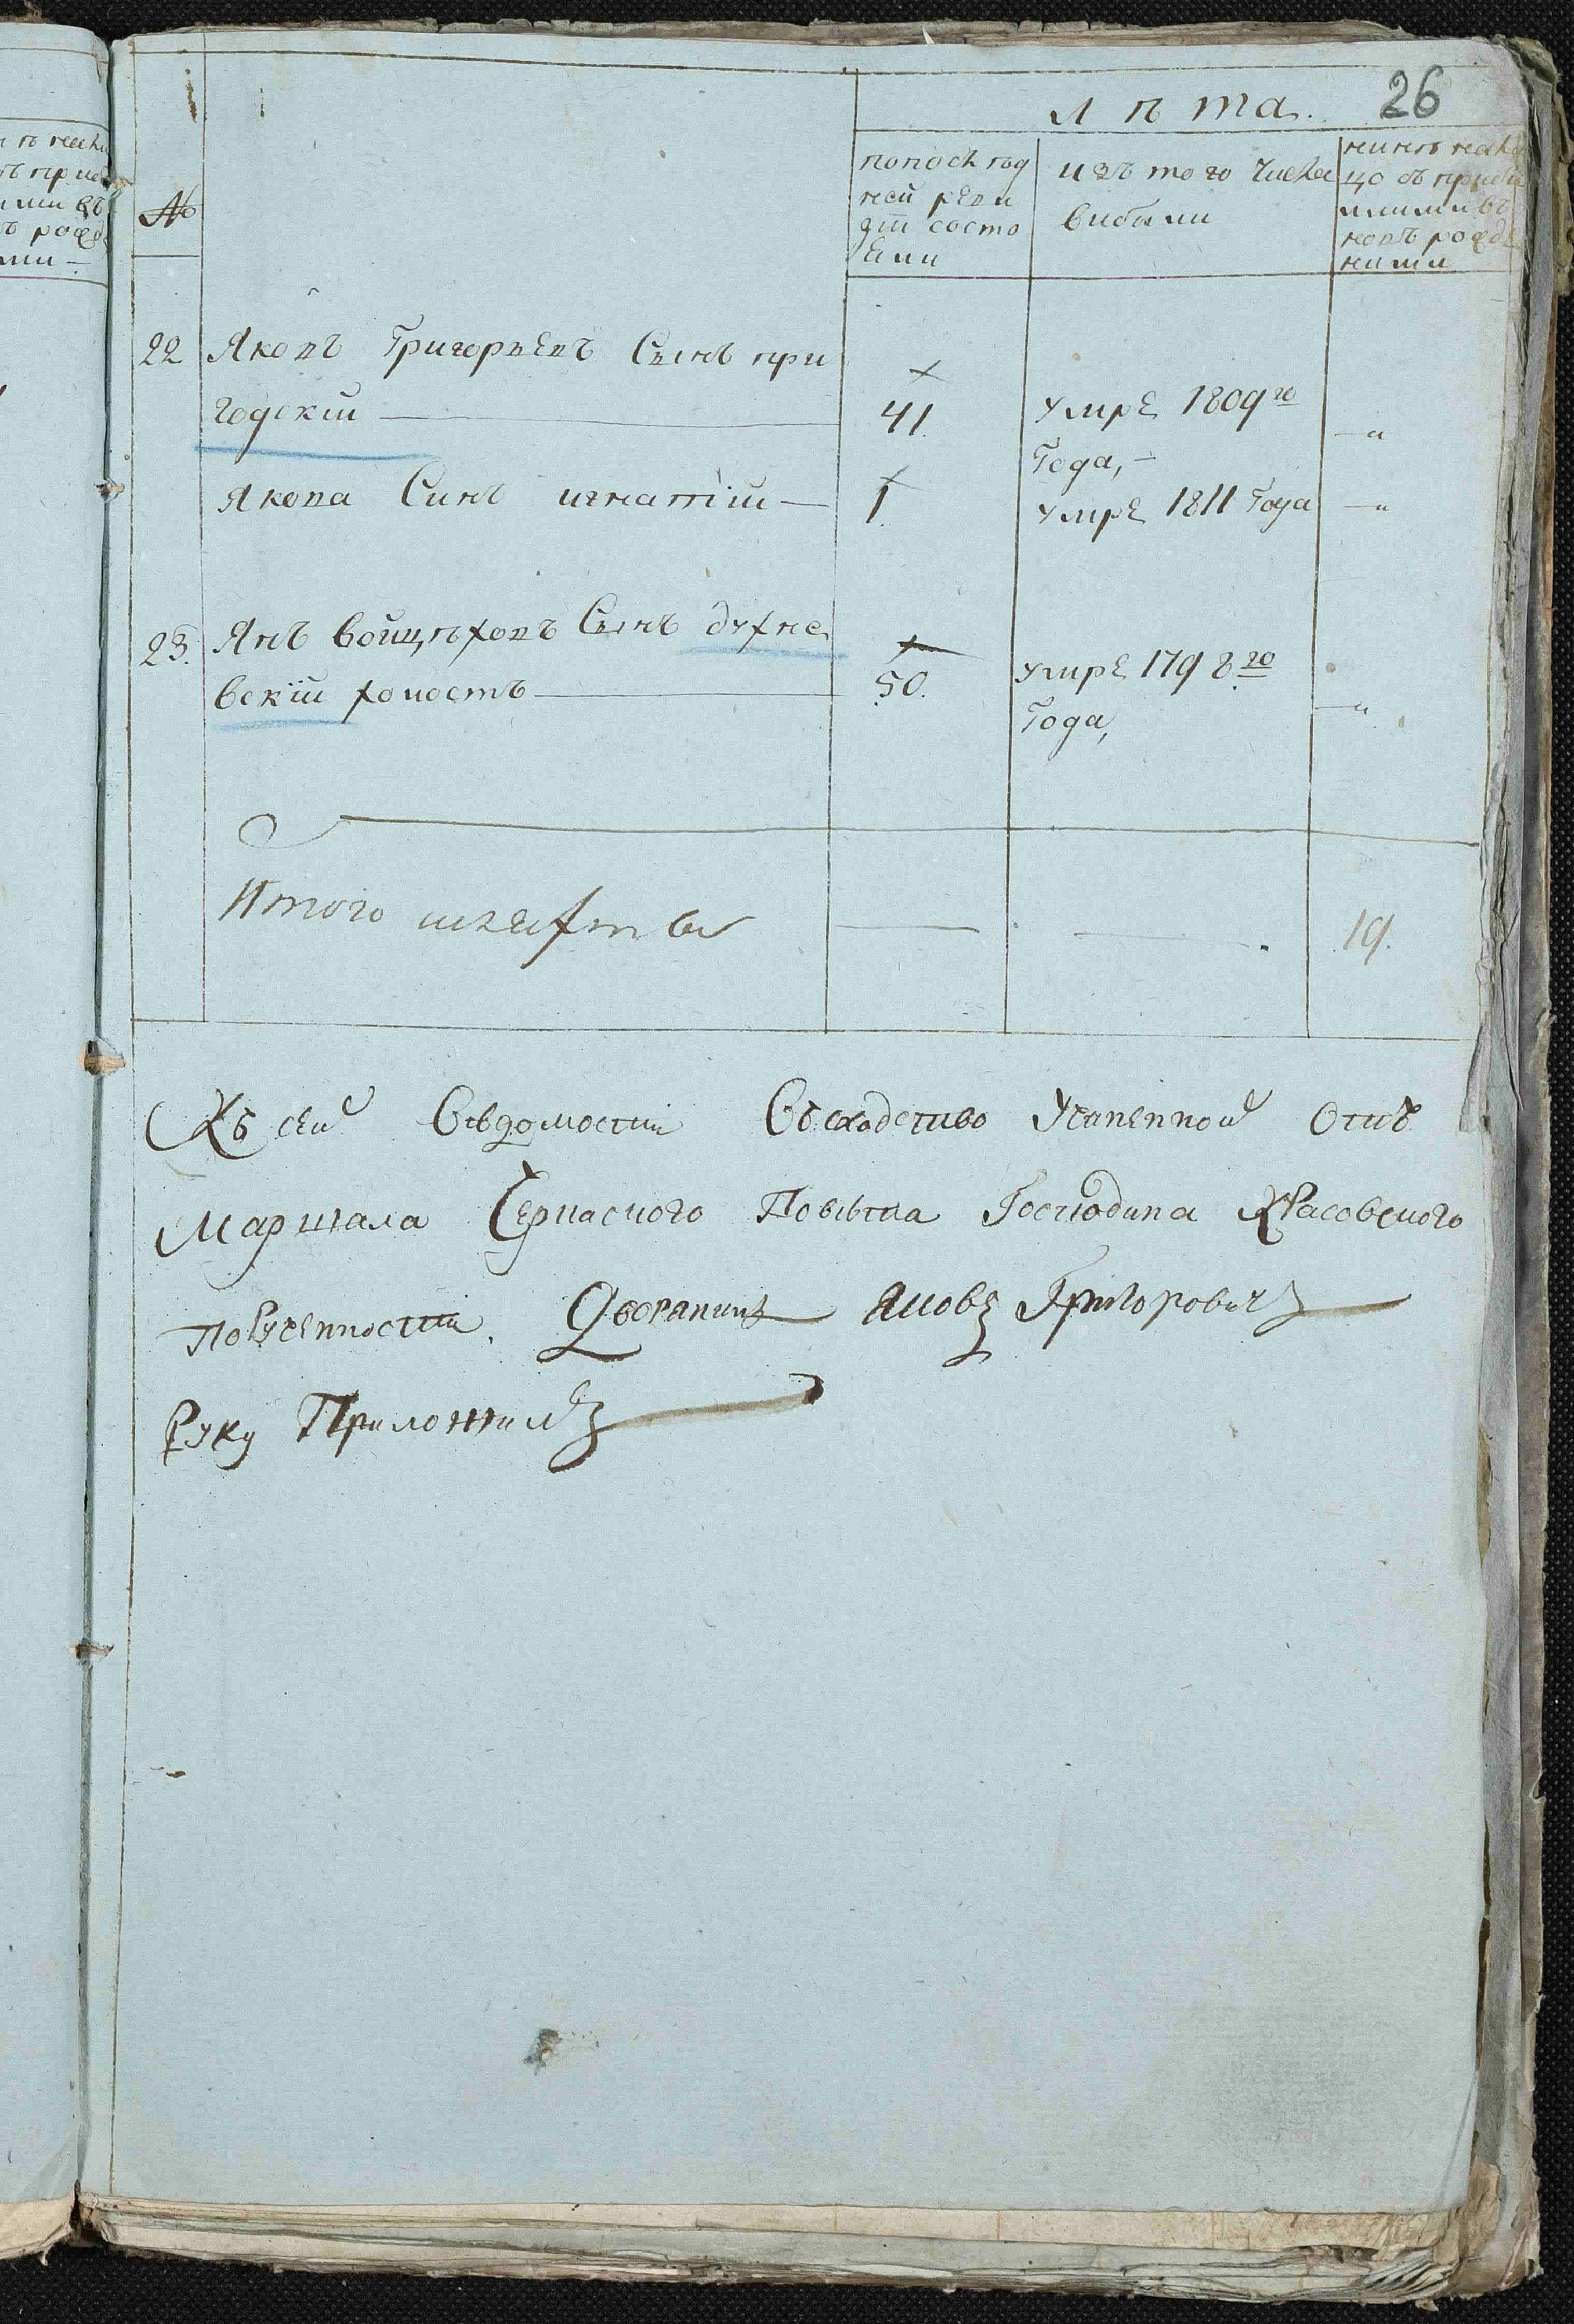 26
лѣта.
№
попослѣд
ней реви
зіи состо
яли
изъ того числа
выбыли
нынѣ налѣ
цо съ прибы
лыми въ
новъ рожде
ными
22 Яковъ Григорьевъ Сынъ при
годскій — 41. умре 1809го — „
Года, —
Якова Сынъ игнатій — 1. умре 1811 Года — „
23. Янъ Войцѣховъ Сынъ духно
вскій холостъ — 50. умре 1798го
Года, — „
Итого шляхты — — 19.
Къ сей Вѣдомости Въсходство Учиненной Отъ
Маршала Черкаского Повѣта Господина Красовского
Порученности. Дворянинъ Яковъ Григоровичъ
Руку Приложилъ